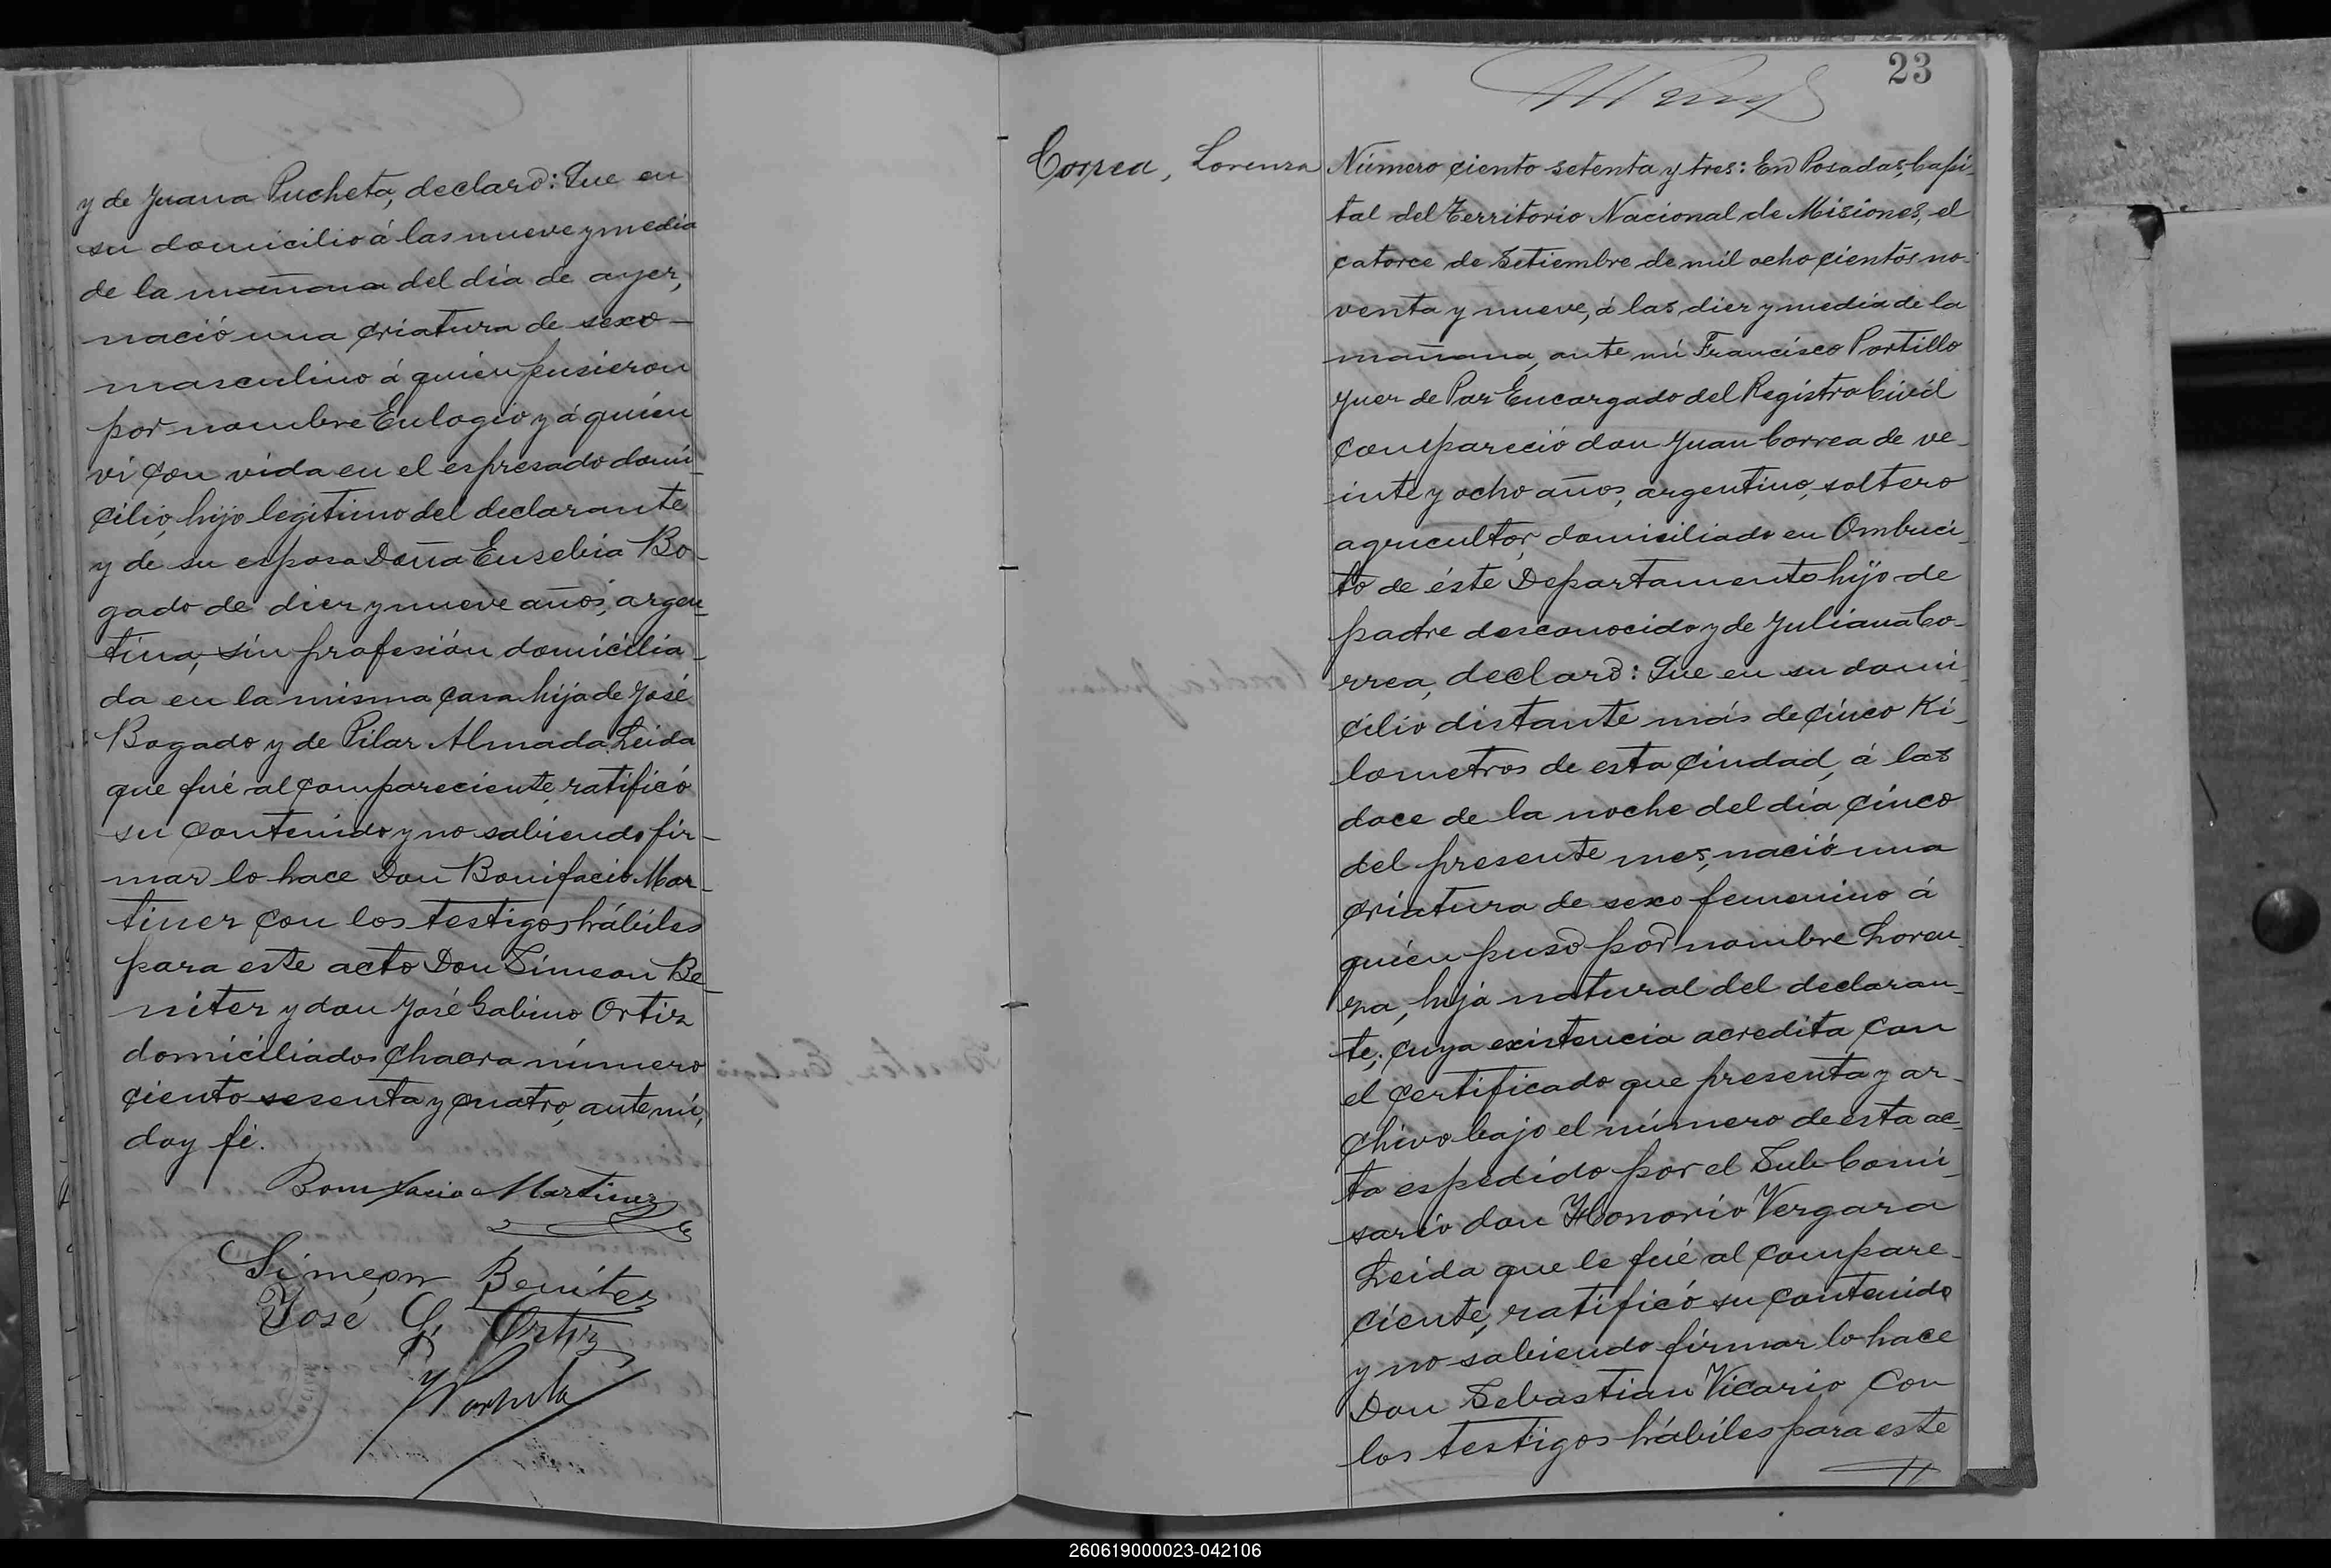 y de Juana Pucheta, declaró: Que en
su domicilio á las nueve y media
de la mañana del día de ayer,
nació una criatura de sexo
masculino á quién pusieron
por nombre Eulogio y á quién
vi con vida en el espresado domi-
cilio, hijo legitimo del declarante
y de su esposa Doña Eusebia Bo-
gado de diez y nueve años, argen-
tina, sin profesión domicilia-
da en la misma casa hija de José
Bogado y de Pilar Almada. Leida
que fué al compareciente, ratificó
su contenido y no sabiendo fir-
mar lo hace Don Bonifacio Mar-
tinez con los testigos hábiles
para este acto Don Simeon Be-
nitez y don José Gabino Ortiz
domiciliados chacra número
ciento sesenta y cuatro, ante mí,
doy fé.
Bonifacio Martinez
Simeon Benitez
José G. Ortiz
23
Correa, Lorenza
Número ciento setenta y tres: En Posadas, Capi-
tal del Territorio Nacional de Misiones, el
catorce de Setiembre de mil ocho cientos no-
venta y nueve, á las diez y media de la
mañana, ante mí Francisco Portillo
Juez de Paz Encargado del Registro Civil
compareció don Juan Correa de ve-
inte y ocho años, argentino, soltero
agricultor, domiciliado en Ombuci-
to de éste Departamento hijo de
padre desconocido y de Juliana Co-
rrea, declaró: Que en su domi-
cilio distante más de cinco Ki-
lometros de esta ciudad, á las
doce de la noche del día cinco
del presente mes, nació una
criatura de sexo femenino á
quién puso por nombre Loren-
za, hija natural del declaran-
te, cuya existencia acredita con
el certificado que presenta y ar-
chivo bajo el número de esta ac-
ta espedido por el Sub-Comi-
sario don Honorio Vergara
Leida que le fué al compare-
ciente, ratificó su contenido
y no sabiendo firmar lo hace
Don Sebastian Vicario con
los testigos hábiles para este
260619000023-042106